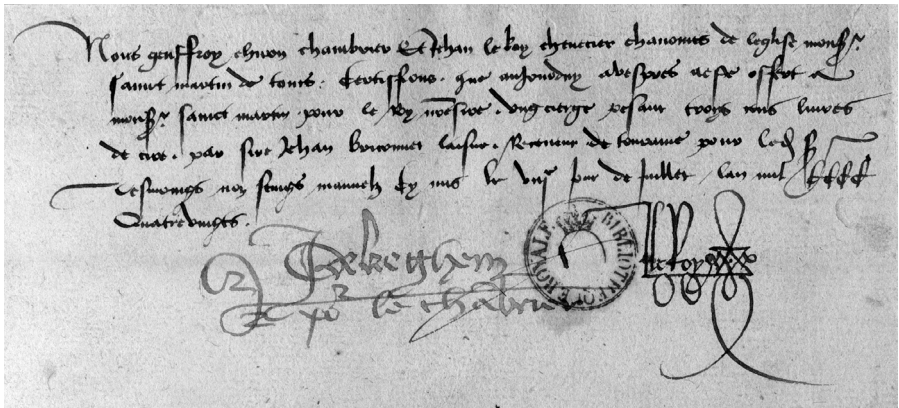 Nous geuffroy chiron chambrier Et Jehan le Roy chevecier chanoines de leglise monsr
sainct martin de tours. Certiffions. que aujourduy a vespres a este offert a
monsr sainct martin pour le Roy nostre sire. ung cierge pesant troys cens livres
de cire. par sire Jehan Briconnet laisne. Receveur de touraine pour ledit sr
Tesmoings noz seings manuelz Cy mis le jour de juillet lan mil CCCC
Quatrevingts.
Okeghem
le Roy
por le chambrier
BIBLIOTHEQUE ROYALE